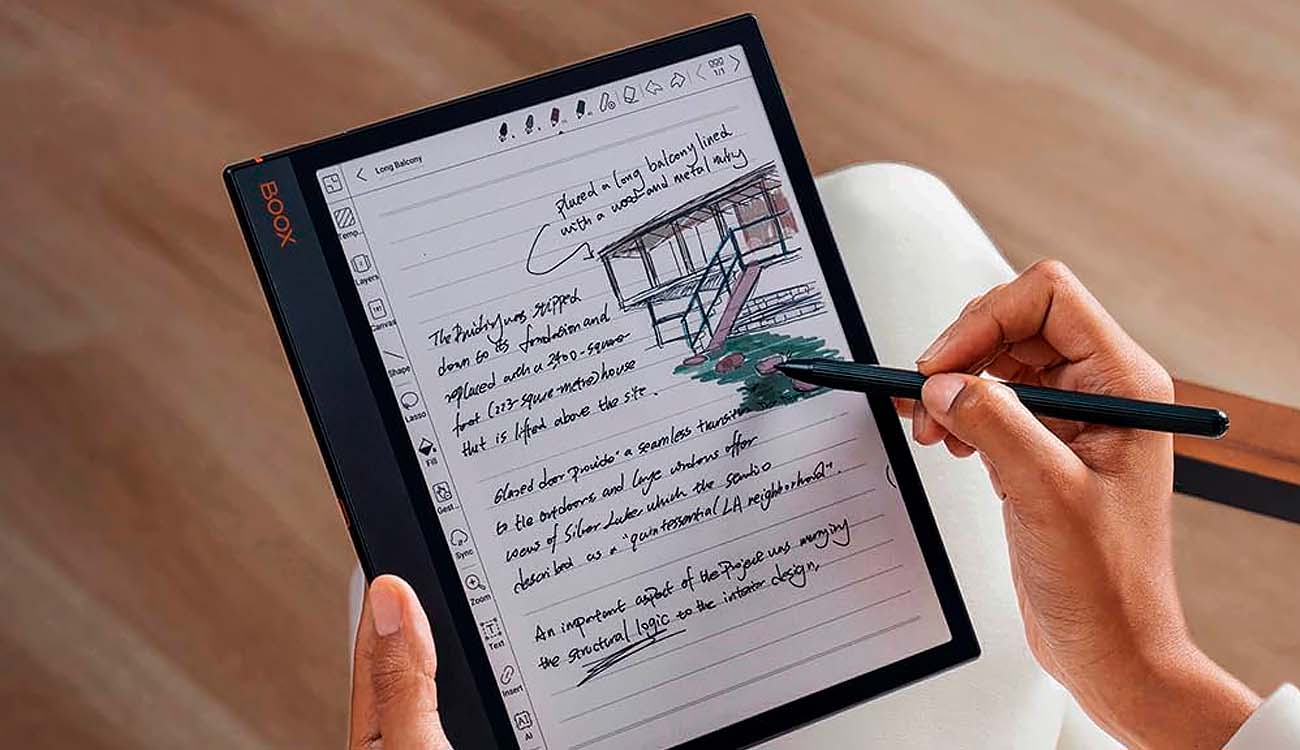 BOOX
Long Balcony
1/1
Temp...
Layers
Canvas
Shape
Lasso
Fill
Gest...
Sync
Zoom
Text
Insert
AI
placed a long balcony lined
with a wood and metal
The Building was stripped
down to its foundation and
replaced with a 2400-square-
foot (223-square-metre) house
that is lifted above the site.
Glazed door provide a seamless
to the outdoors and large windows offer
views of Silver Lake which the studio
described as a "quintessential LA neighborhood".
An important aspect of the Project was merging
the structural logic to the interior design,